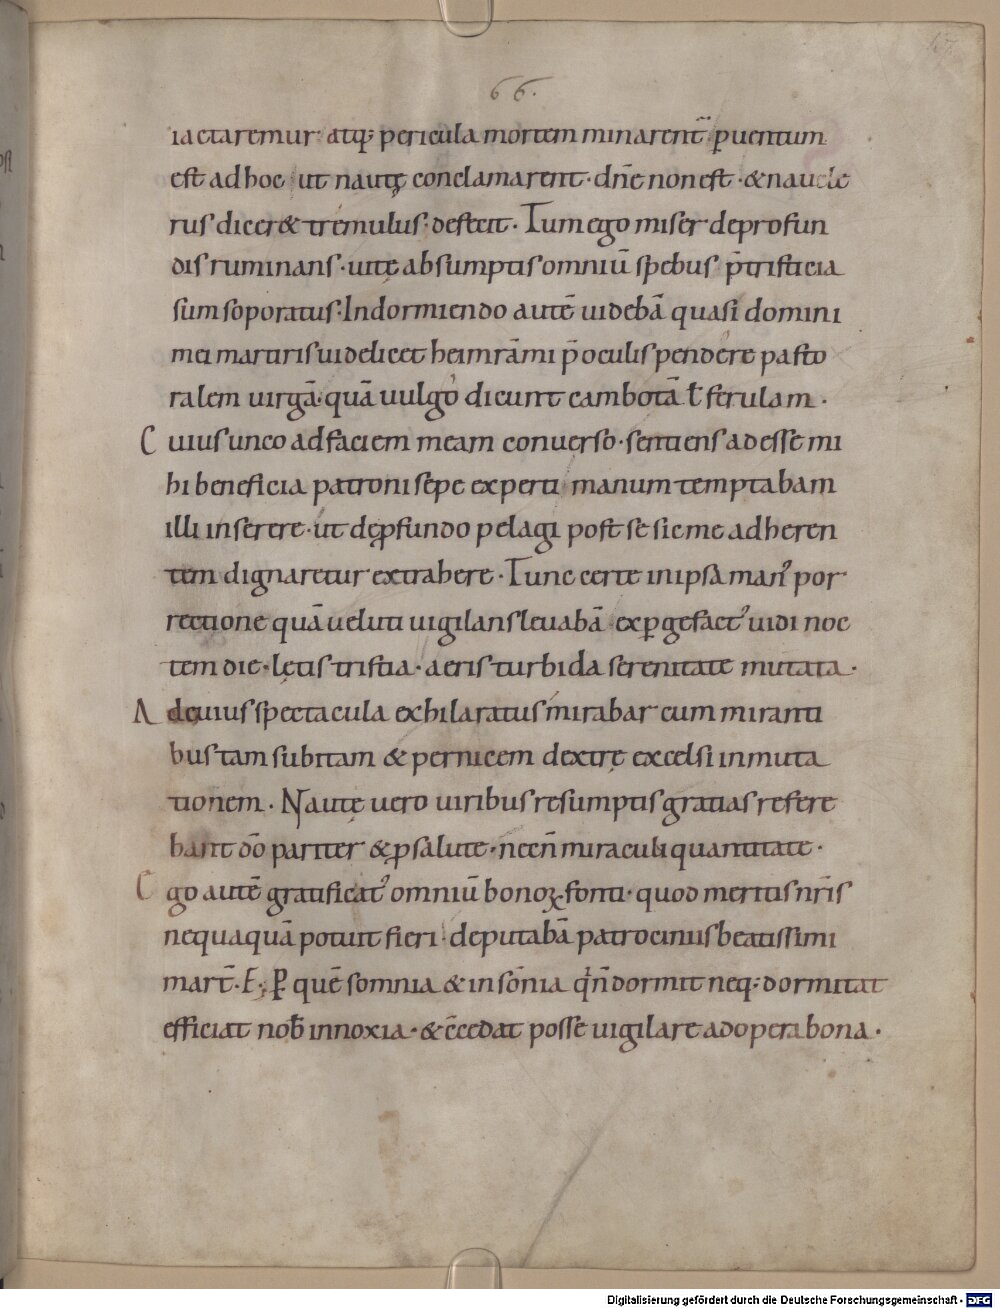 66.
iactaremur atq; pericula mortem minarent̄ puentum
est ad hoc ut nautę conclamarent · dn̄e non est · & naucle
rus dicer& tremulus · deficit · Tum ego miser de profun
dis ruminans · uitę absumptis omniū spebus p̄ tristicia
sum soporatus · In dormiendo autē uidebā quasi domini
mei martiris uidelicet heimrāmi p̄ oculis pendere pasto
ralem uirgā · quā uulgo dicunt cambotā ł ferulam ·
Cuius unco ad faciem meam conuerso · sentiens adesse mi
hi beneficia patroni sepe experti manum temptabam
illi inserere · ut de ꝓfundo pelagi post se sic me adheren
tem dignaretur extrahere · Tunc certe in ipsa man᾽ por
rectione quā ueluti uigilans leuabā exꝑgefact᾽ uidi noc
tem die · lętis tristia · aeris turbida serenitate mutata ·
Ad cuius spectacula exhilaratus mirabar cum miranti
bus tam subitam & pernicem dextrę excelsi inmuta
tionem · Nautę uero uiribus resumptis gratias refere
bant dō pariter & ꝓ salute · necn̄ miraculi quantitate ·
Ego autē gratificat᾽ omniū bonoꝝ fonti · quod meritis nr̄is
nequaquā potuit fieri · deputabā patrociniis beatissimi
mart̄ · E · ꝑ quē somnia & insōnia qͥ n̄ dormit neq; dormitat
efficiat nob̄ innoxia · & c̄cedat posse uigilare ad opera bona ·
Digitalisierung gefördert durch die Deutsche Forschungsgemeinschaft - DFG